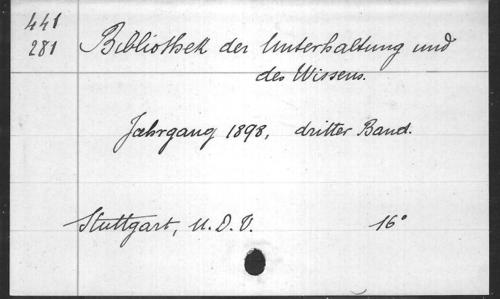 441
281
Bibliothek der Unterhaltung und
des Wissens.
Jahrgang 1898, dritter Band.
Stuttgart, U. D. V. 16°